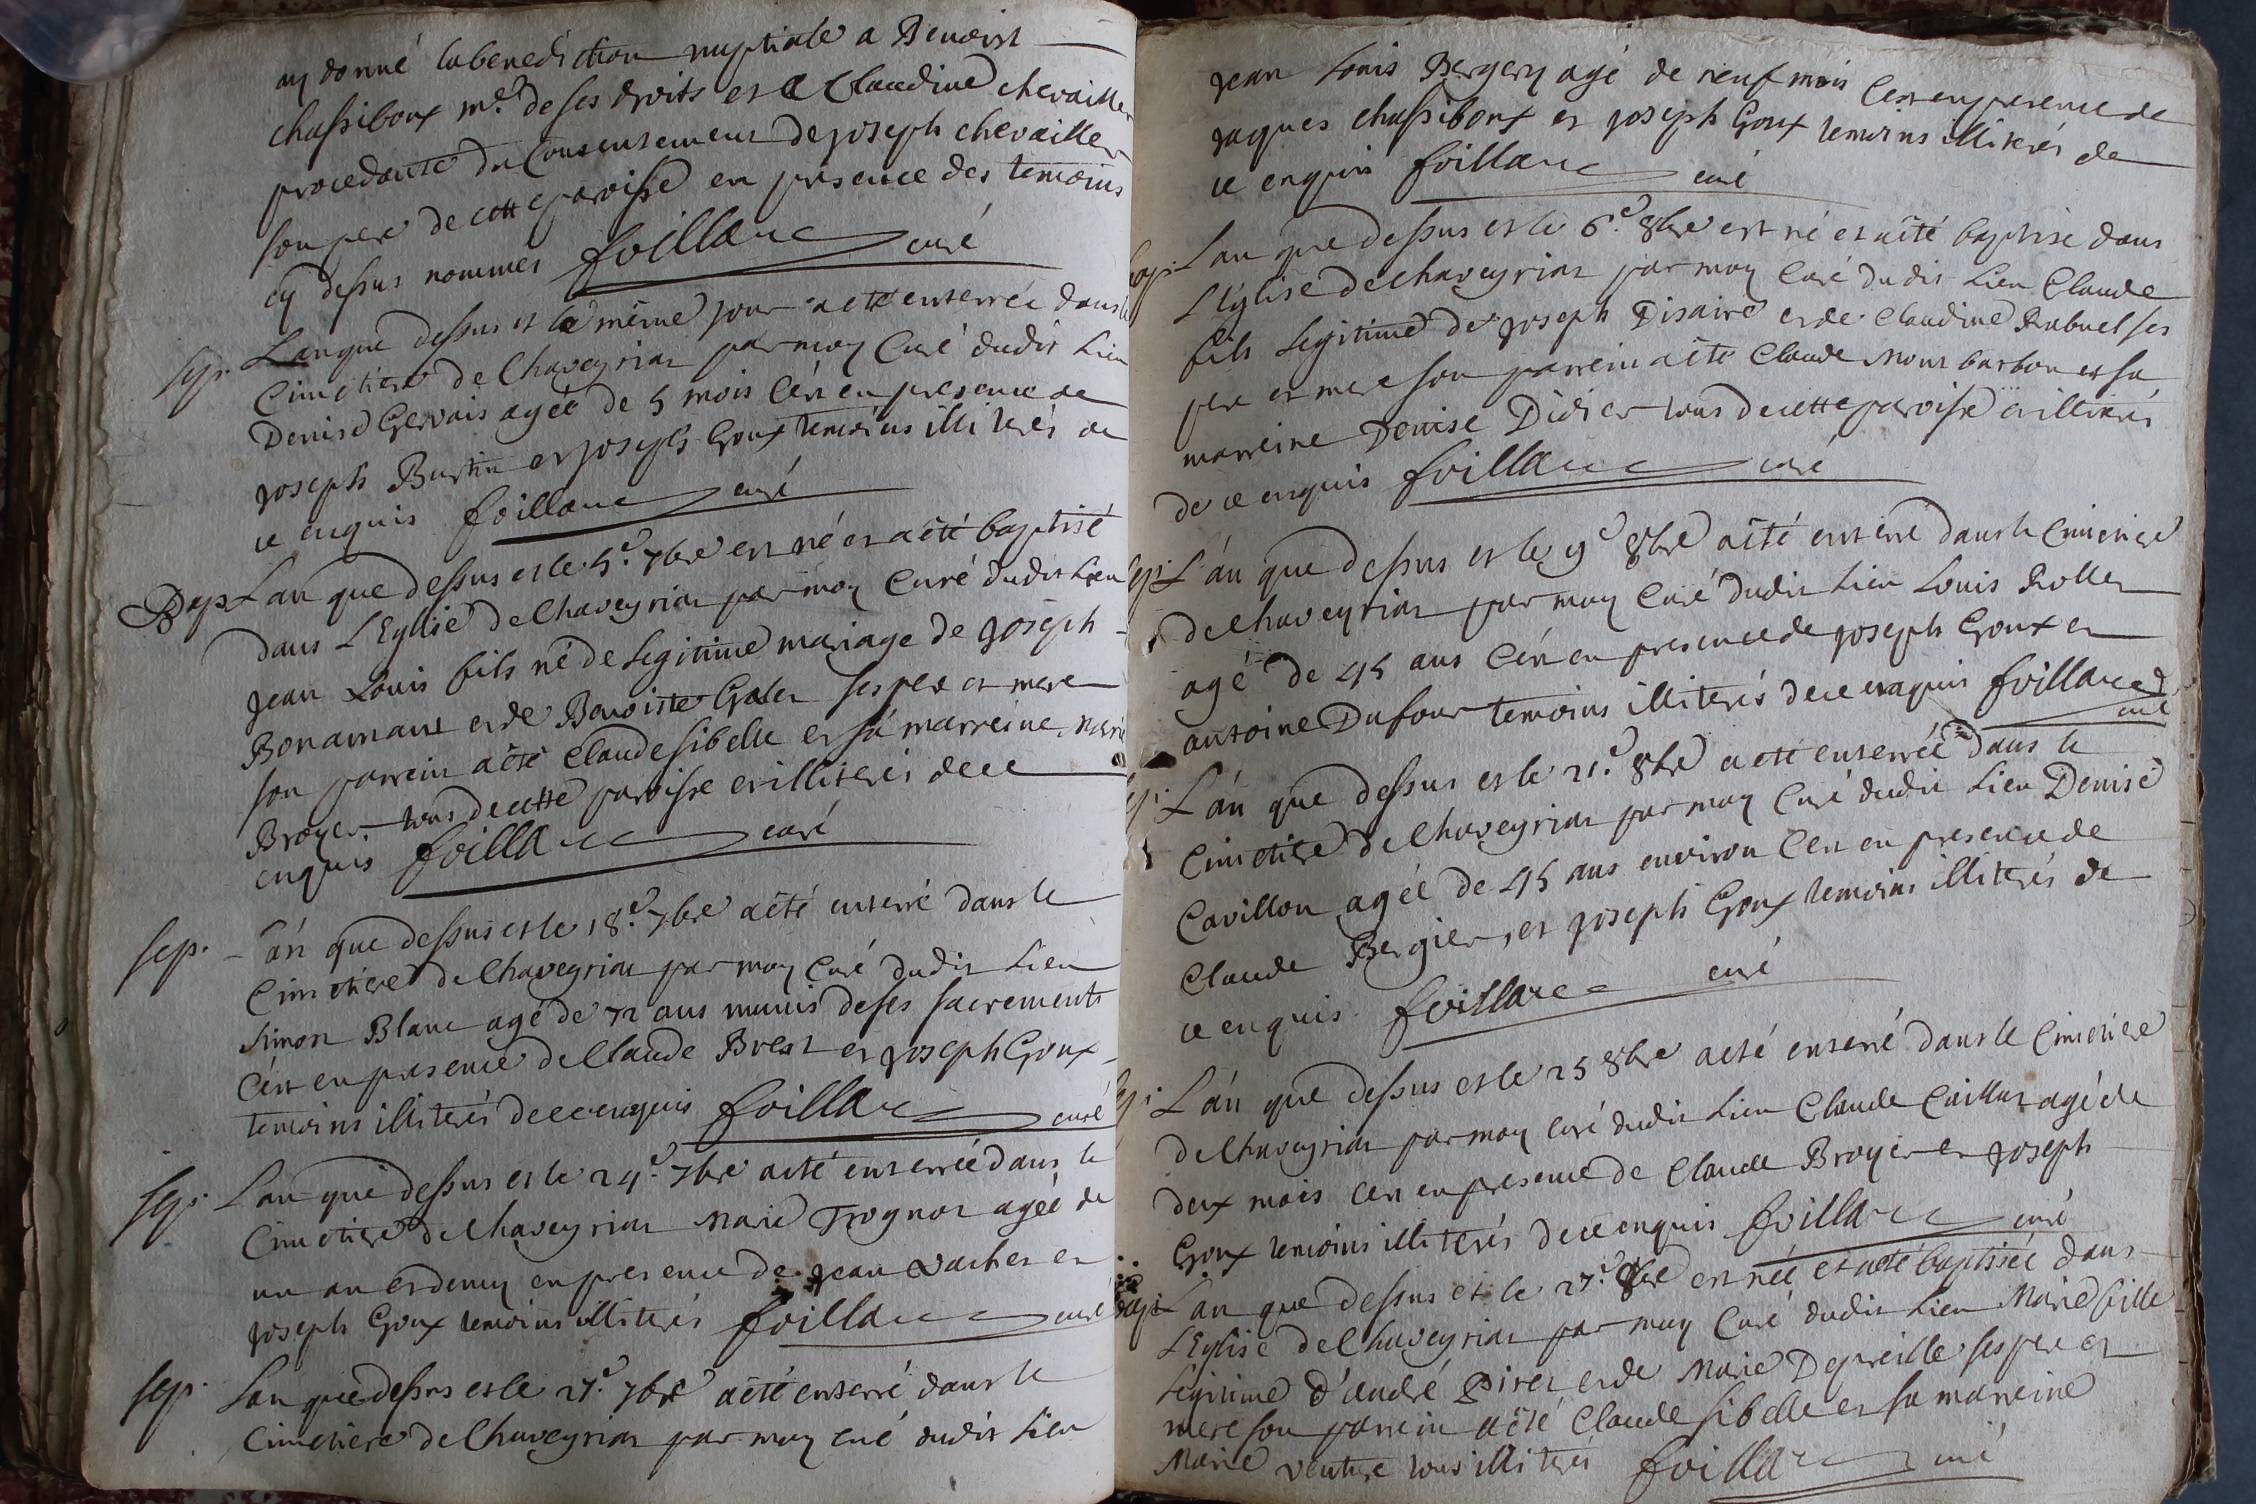 ay donné la benediction nuptiale a Benoist
chassiboux me. de ses droits et a Claudine chevailler
procedante du Consentement de joseph chevailler
son pere de cette paroisse en presence des temoins
cy dessus nommés foillan curé
sep. L'an que dessus et le même jour a eté enterrée dans le
Cimetiere de Chaveyriat par moy Curé dudit Lieu
Denise Gervais agée de 5 mois C'ést en presence de
joseph Burtin et joseph Goux temoins illiterés de
ce enquis foillan curé
Bap. L'an que dessus et le 5e. 7bre est né et a été baptisé
dans L'Eglise de Chaveyriat par moy Curé dudit Lieu
jean Louis fils né de Legitime mariage de joseph
Bonamant et de Benoiste Galet ses pere et mere
son parrein a été Claude sibelle et sá marreine Marie
Broyer tous de cette paroisse et illiterés de ce
enquis foillan curé
sep. L'an que dessus et le 18e. 7bre a été enterré dans le
Cimetiere de Chaveyriat par moy Curé dudit Lieu
Simon Blanc agé de 72 ans munis de ses sacrements
C'ést en presence de Claude Brest et joseph Goux
temoins illiterés de ce enquis foillan curé
sep. L'an que dessus et le 24e. 7bre a eté enterrée dans le
Cimetiere de Chaveyriat Marie Trognot agée de
un an et demy en presence de jean Vacher et
joseph Goux temoins illiterés foillan curé
sep. L'an que dessus et le 27e. 7bre a eté enterré dans le
Cimetiere de Chaveyriat par moy curé dudit Lieu
jean Louis Bergery agé de neuf mois C'est en presence de
jaques chassiboux et joseph Goux temoins illiterés de
ce enquis foillan curé
bap. L'an que dessus et le 6e. 8bre est né et a été baptisé dans
L'Eglise de Chaveyriat par moy Curé dudit Lieu Claude
fils Legitime de joseph Disaire et de Claudine Rabuel ses
pere et mere son parrein a été Claude Mont barbon et sa
marreine Denise Didier tous de cette paroisse et illiterés
de ce enquis foillan curé
sep. L'án que dessus et le 9e 8bre a été enterré dans le Cimetiere
de Chaveyriat par moy Curé dudit Lieu Louis Rollet
agé de 45 ans C'ést en presence de joseph Goux et
antoine Dufour temoins illiterés de ce enquis foillan
curé
sep. L'án que dessus et le 21e. 8bre a eté enterrée dans le
Cimetiere de Chaveyriat par moy Curé dudit Lieu Denise
Cavillon agée de 45 ans environ C'est en presence de
Claude Bergier, et joseph Goux temoins illiterés de
ce enquis foillan curé
sep. L'án que dessus et le 25 8bre a eté enterré dans le Cimetiere
de Chaveyriat par moy curé dudit Lieu Claude Caillat agé de
deux mois C'est en presence de Claude Broyer et joseph
Goux temoins illiterés de ce enquis foillan curé
bap. L'an que dessus et le 27e. 8bre est née et a eté baptisée dans
L'Eglise de Chaveyriat par moy Curé dudit Lieu Marie fille
Legitime d'andré Piret et de Marie Depreille ses pere et
mere son parrein a été Claude sibelle et sa marreine
Marie Venture tous illiterés foillan curé